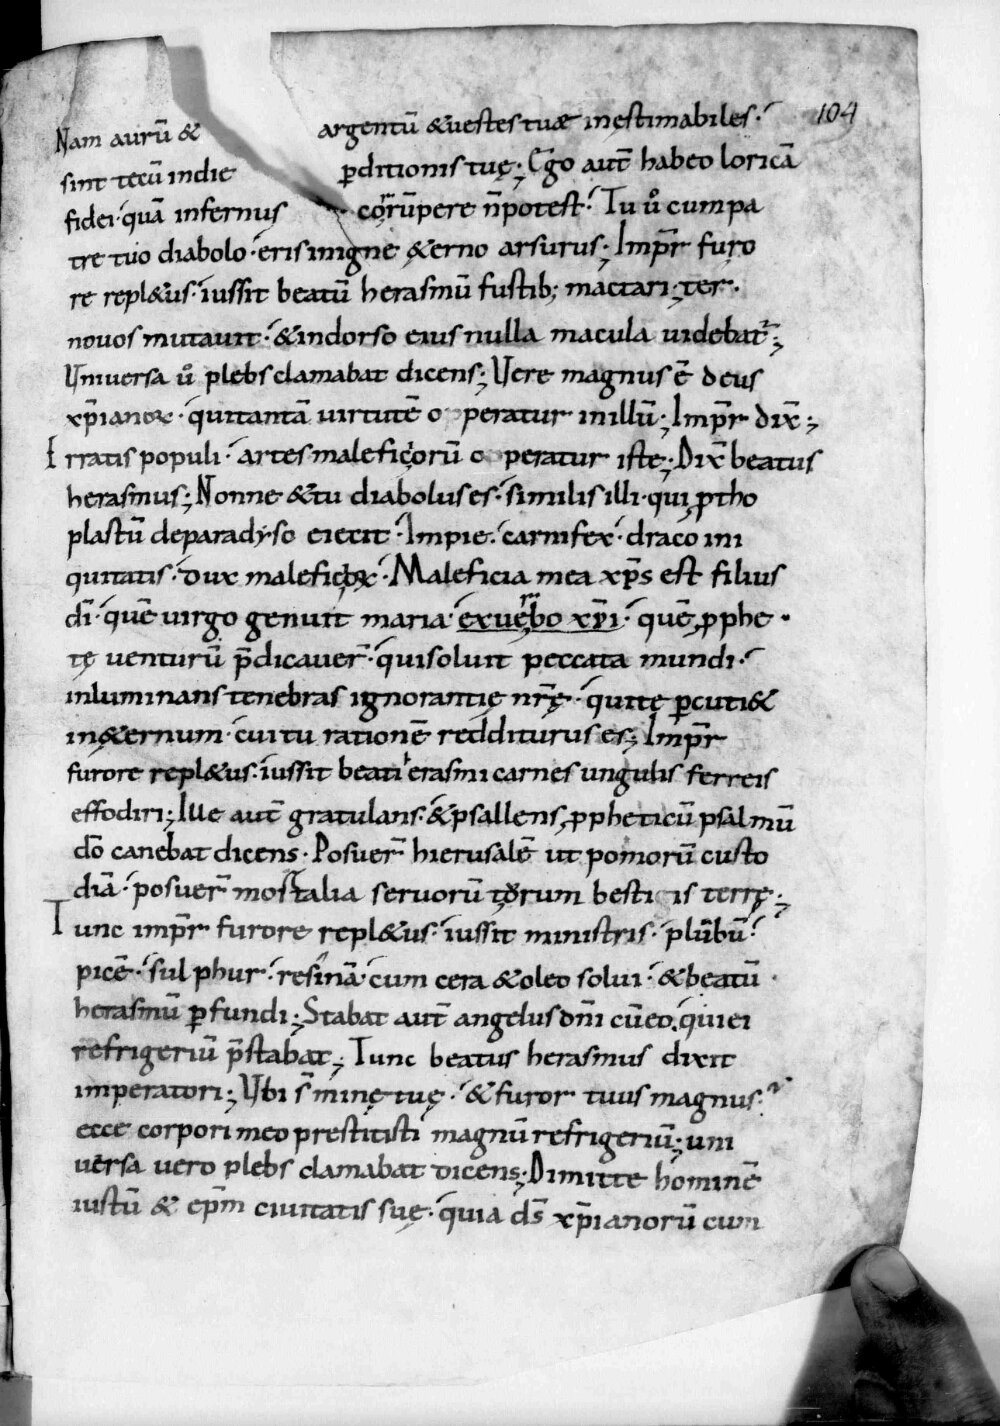 104
Nam aurū & argentū &uestes tuæ inęstimabiles·
sint tecū indie ꝑditionis tuę; Ego aut̄ habeo loricā
fidei· quā infernus corrūpere n̄ potest· Tu ů cum pa
tre tuo diabolo· eris inigne &ęrno arsurus; Imp̄r furo
re repl&us· iussit beatū herasmū fustib; mactari; ter·
nouos mutauit· &indorso eius nulla macula uidebat᷑;
Uniuersa ů plebs clamabat dicens; Uere magnus ē deus
xp̄ianoꝝ· quitantā uirtutē operatur inillū; Imp̄r dix̄;
Erratis populi· artes maleficorū operatur iste; Dix̄ beatus
herasmus; Nonne &tu diabolus es· similis illi· qui ꝓtho
plastū deparadyso eiecit· Impie· carnifex· draco ini
quitatis· dux maleficoꝝ· Maleficia mea xp̄s est filius
dī· quē uirgo genuit maria· exuerbo xp̄i· quē ꝓphe·
tę uenturū p̄dicauer̄· quisoluit peccata mundi·
inluminans tenebras ignorantię nr̄ę· quite ꝑcuti&
in&ernum· cui tu rationē redditurus es; Imp̄r
furore repl&us· iussit beati herasmi carnes ungulis ferreis
effodiri; Ille aut̄ gratulans· &psallens ꝓpheticū psalmū
dō canebat dicens· Posuer̄ hierusalē ut pomorū custo
diā· posuer̄ mortalia seruorū tuorum bestiis terrę;
Tunc imp̄r furore repl&us· iussit ministris· plūbū·
picē· sulphur· resinā· cum cera &oleo solui· &beatū·
herasmū ꝑfundi; Stabat aut̄ angelus dn̄i cū eo· qui ei
refrigeriū p̄stabat; Tunc beatus herasmus dixit
imperatori; Ubi s̄ minę tuę· &furor tuus magnus·
ecce corpori meo prestitisti magnū refrigeriū; uni
uersa uero plebs clamabat dicens; Dimitte hominē
iustū & ep̄m ciuitatis suę· quia ds̄ xp̄ianorū cum